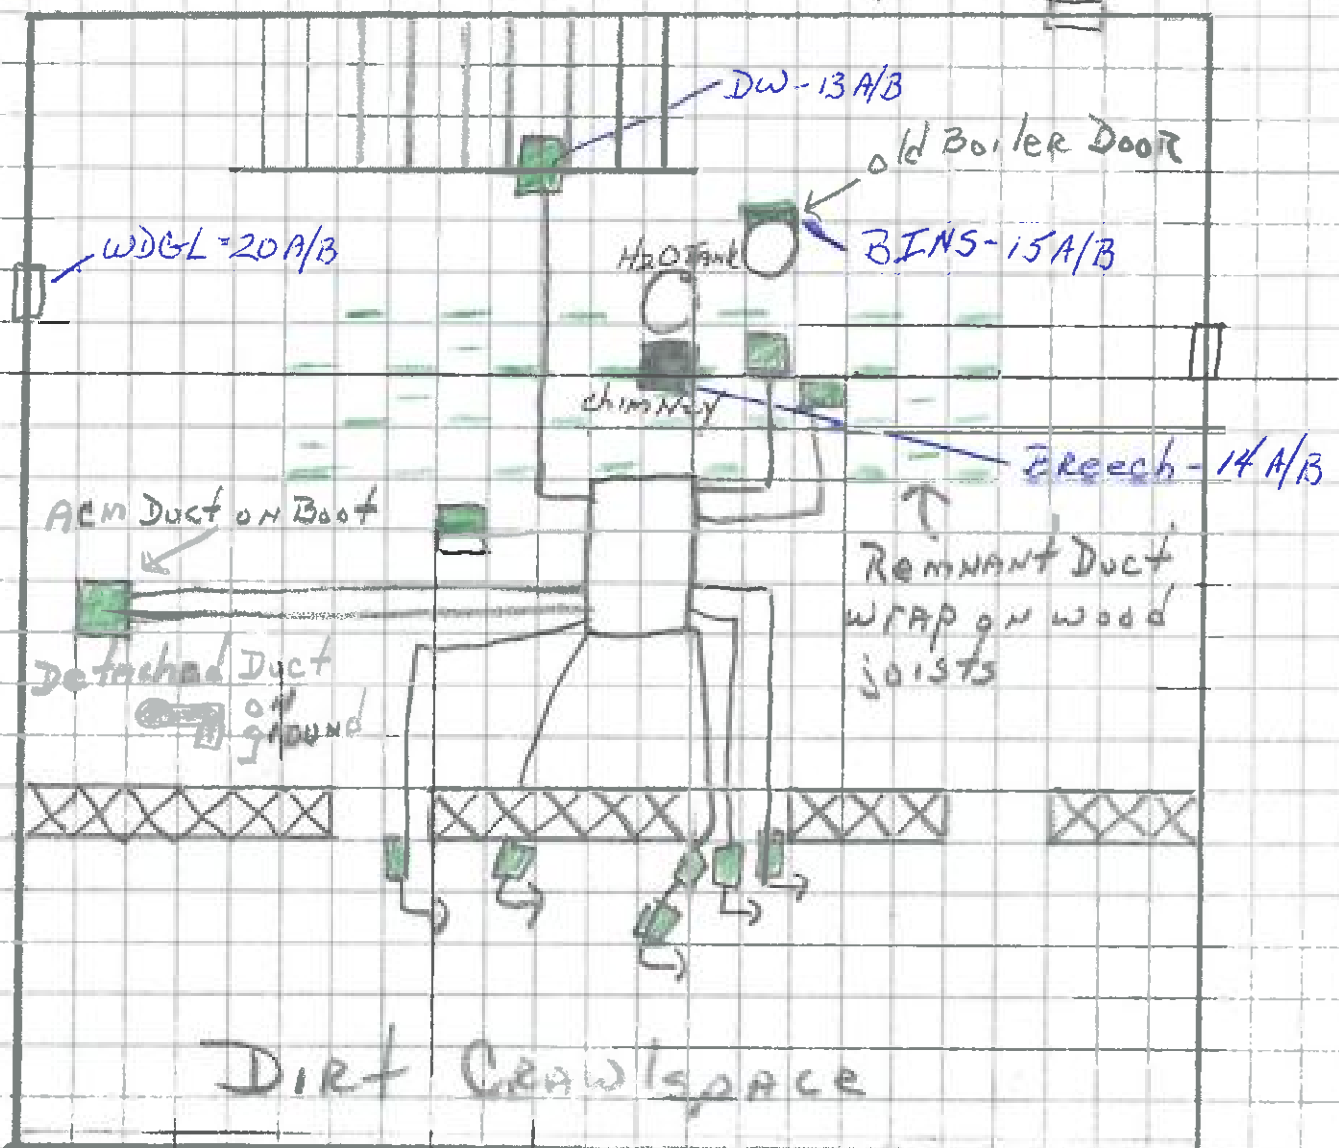 DW-13A/B
old Boiler Door
WDGL-20A/B
BINS-15A/B
H2O Tank
chimney
Breech-14A/B
ACM Duct on Boot
Remnant Duct
wrap on wood
joists
Detached Duct
on
ground
Dirt Crawlspace